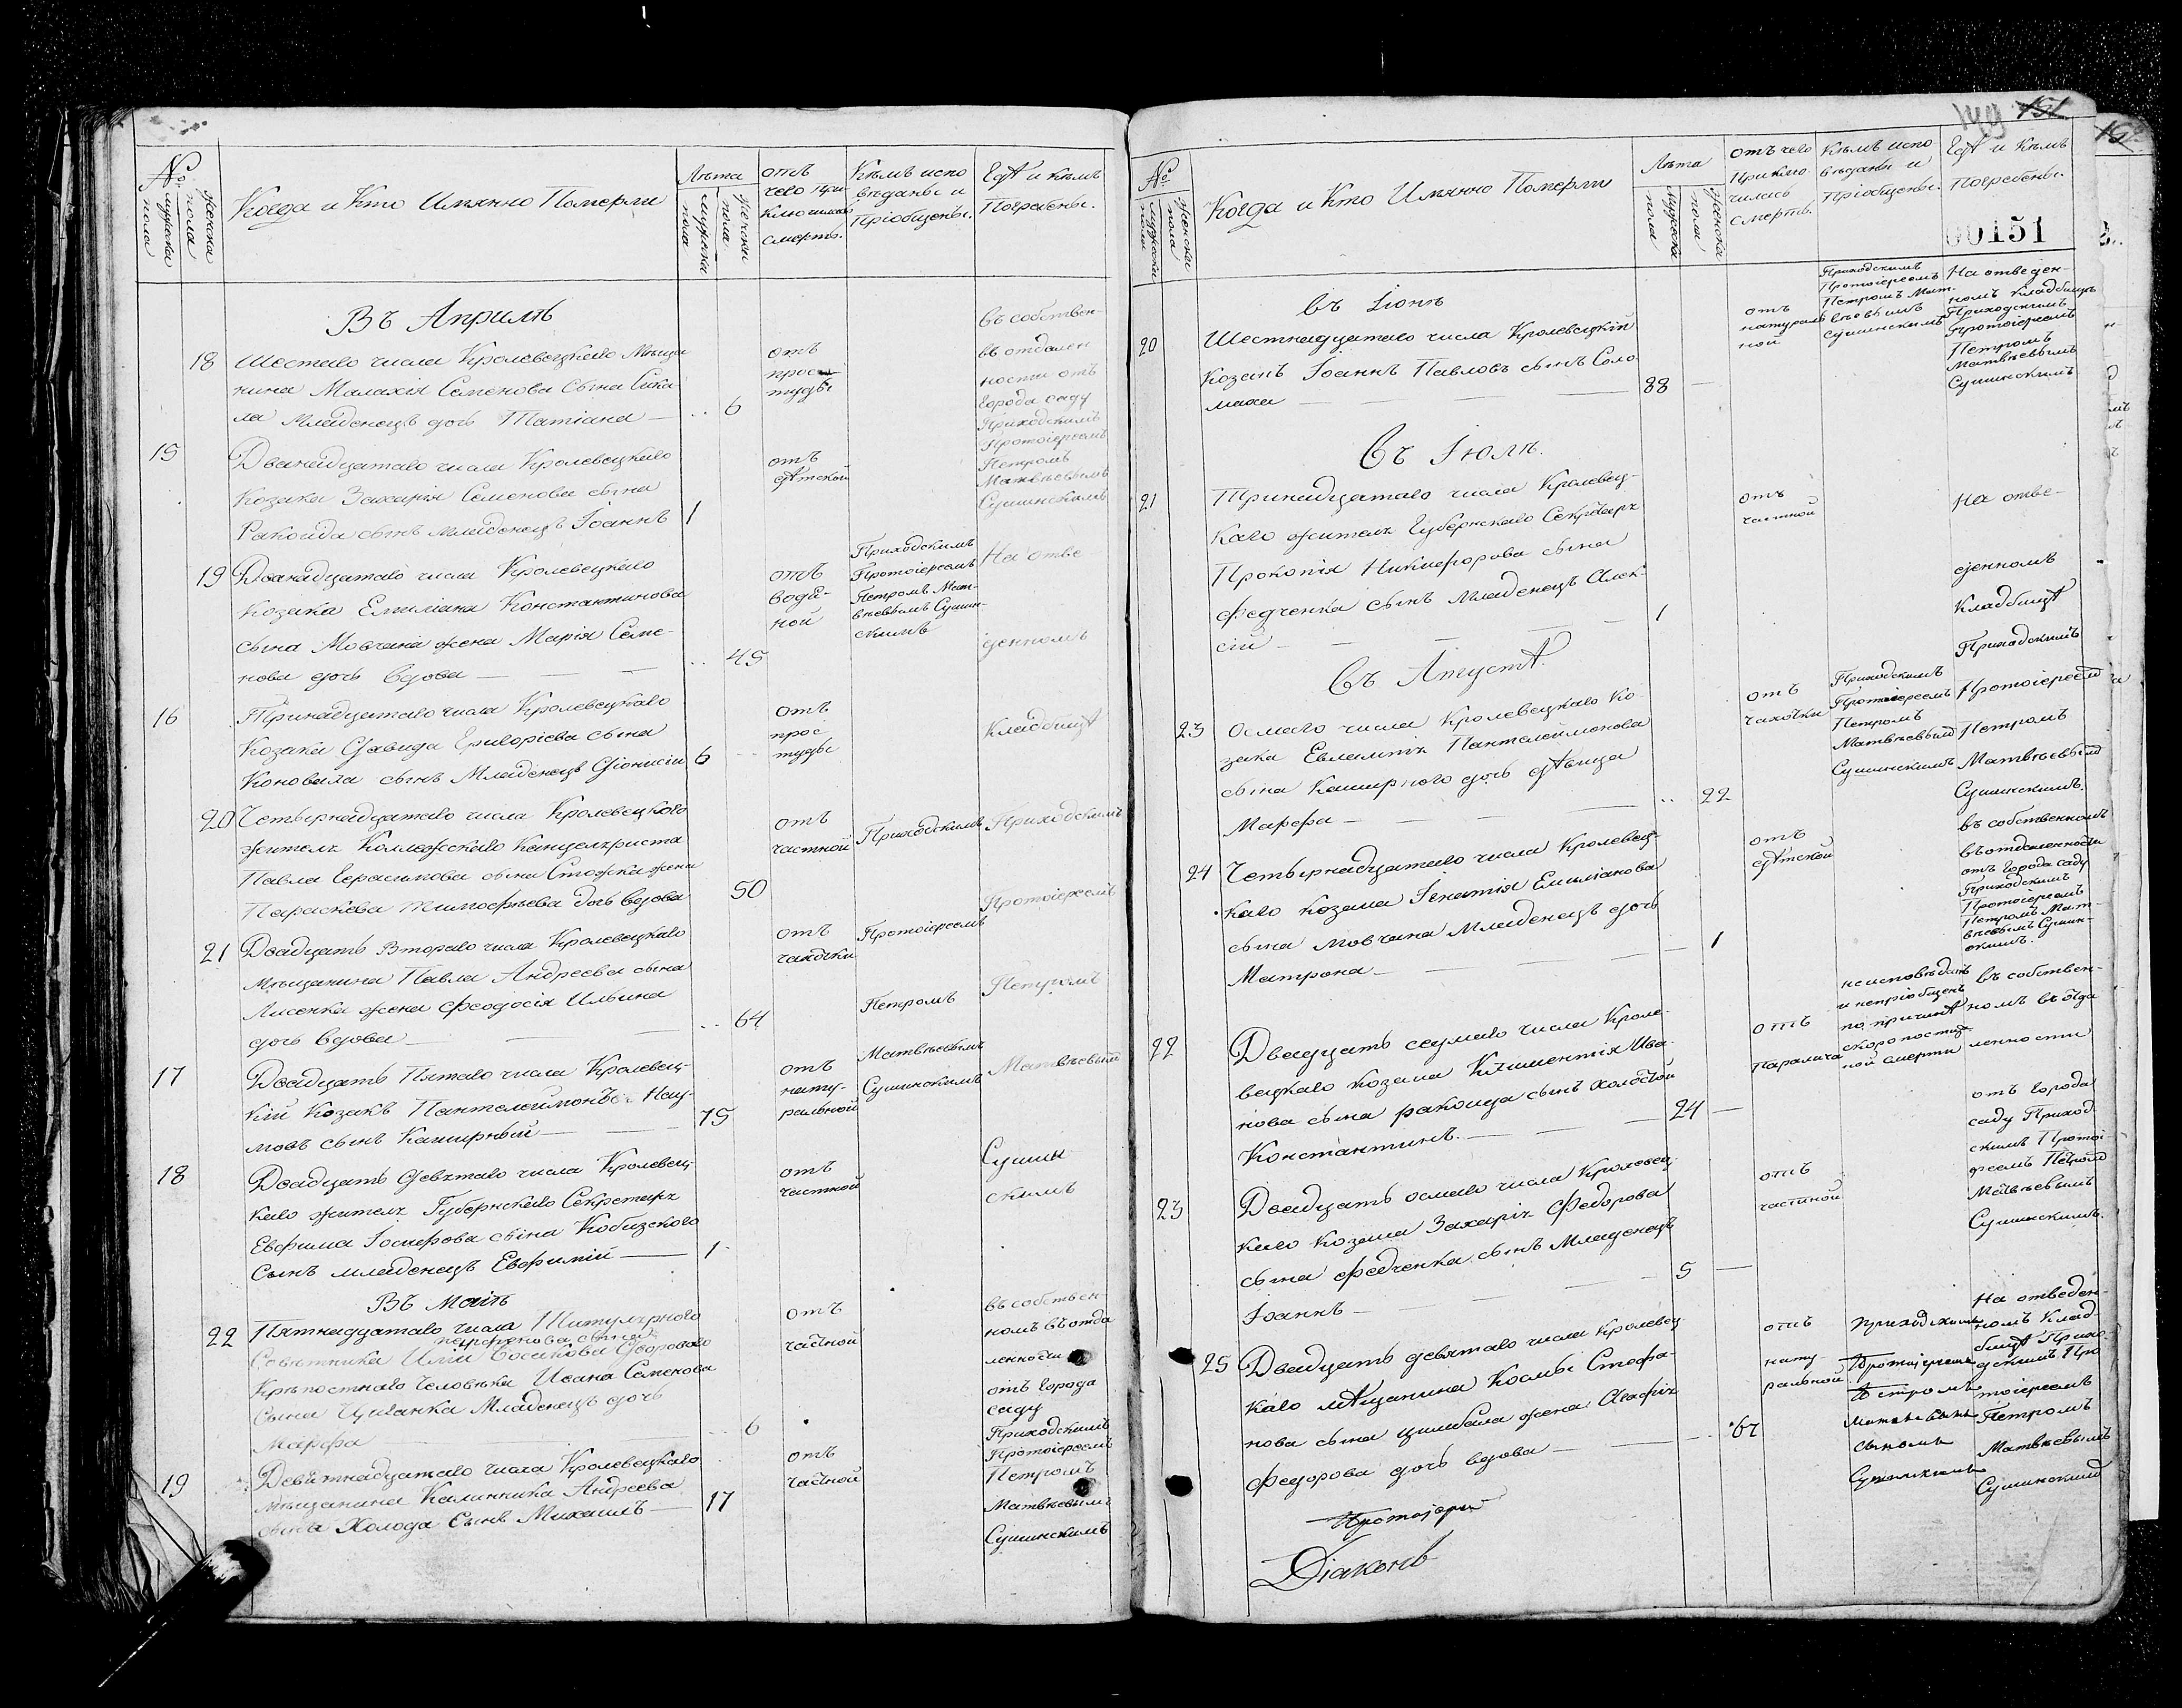 №
мужеска пола
женска пола
Когда и Кто Имянно Померли
Лѣта
мужеска пола
женска пола
отъ
чего при
ключилась
смерть.
Кѣмъ испо
вѣданы и
Пріобщены.
Гдѣ и кѣмъ
Погребены.
Въ Априлѣ
18 Шестаго числа Кролевецкаго Мѣща
нина Малахія Семенова сына
ла младенецъ дочь Татіана — 6
отъ
прос
туды
въ собствен
въ отдален
ности отъ
Города саду
Приходскимъ
Протоіереемъ
Петромъ
Матвѣевымъ
Сушинскимъ
15 Дванадцатаго числа Кролевецкаго
Козака Захарія Семенова сына
Ракоида сынъ младенецъ Іоаннъ 1
отъ
дѣтской
19 Дванадцатаго числа Кролевецкаго
козака Емиліана Константинова
сына Мовчана жена Марія Семе-
нова дочь вдова — 45
отъ
водя-
ной
Приходскимъ
Протоіереемъ
Петромъ Мат-
вѣевымъ Сушин-
скимъ
На отве
денномъ
16 Тринадцатаго числа Кролевецкаго
Козака Давида Григоріева сына
Коновала сынъ Младенецъ Діонисій 6
отъ
прос
туды
Кладбищѣ
20 Четырнадцатаго числа Кролевецкого
жителя Коллежскаго Канцеляриста
Павла Герасимова сына Стожка жена
Параскева Тимофѣева дочь вдова 50
отъ
частной
Приходскимъ
Приходскимъ
Протоіереемъ
21 Двадцать Втораго числа Кролевецкаго
Мѣщанина Павла Андреева сына
Лисенка жена Феодосія Ильина
дочь вдова — 64
отъ
чахотки
Протоіереемъ
Петромъ
Петромъ
17 Двадцать Пятаго числа Кролевец-
кій Козакъ Пантелеимонъ Нау-
мовъ сынъ Каширный — 75
отъ
нату-
ральной
Матвѣевымъ
Сушинскимъ
Матвѣевымъ
18 Двадцать Девятаго числа Кролевец-
каго жителя Губернскаго Секретаря
Евфима Іосифова сына Кобизскаго
Сынъ младенецъ Евфимій — 1
отъ
частной
Сушин
скимъ
Въ Маіѣ
22 Пятнадцатаго числа Титулярного
Парфенова сына
Совѣтника Иліи Дворового
Крѣпостнаго Человѣка Ивана Семенова
Сына Циганка Младенецъ дочь
Марфа 6
отъ
частной
въ собствен-
номъ въ отда
ленности
отъ Города
саду
Приходскимъ
Протоіереемъ
Петромъ
Матвѣевымъ
Сушинскимъ
19 Девятнадцатаго числа Кролевецкаго
мѣщанина Калинника Андреева
сына Холода Сынъ Михаилъ — 17
отъ
частной
151
00151
№
мужеска пола
женска пола
Когда и Кто Имянно Померли
Лѣта
мужеска пола
женска пола
Отъ чего
приклю
чилась
смерть.
Кѣмъ испо
вѣданы и
Пріобщены.
Гдѣ и кѣмъ
Погребены.
Въ Іюнѣ
20 Шестнадцатаго числа Кролевецкій
Козакъ Іоаннъ Павловъ сынъ Соло
маха — 88
отъ
натураль
ной
Приходскимъ
Протоіереемъ
Петромъ Мат-
вѣевымъ
Сушинскимъ
На отведен-
номъ Кладбищѣ
Приходскимъ
Протоіереемъ
Петромъ
Матвѣевымъ
Сушинскимъ
Въ Іюлѣ.
21 Тринадцатаго числа Кролевец-
каго жителя Губернскаго Секретаря
Прокопія Никифорова сына
Федченка сынъ младенецъ Алек-
сій — 1
отъ
частной
На отве-
денномъ
Кладбищѣ
Приходскимъ
Протоіереемъ
Петромъ
Матвѣевымъ
Сушинскимъ.
Въ Августѣ.
23 Осмаго числа Кролевецкаго Ко-
зака Евлампія Пантелеимонова
сына Каширного дочь дѣвица
Марфа — 22
отъ
чахотки
Приходскимъ
Протоіереемъ
Петромъ
Матвѣевымъ
Сушинскимъ
24 Четырнадцатаго числа Кролевец-
каго козака Игнатія Емиліанова
сына Мовчана Младенецъ дочь
Матрона — 1
отъ
дѣтской
въ собственномъ
въ отдаленности
отъ Города саду
Приходскимъ
Протоіереемъ
Петромъ Мат-
вѣевымъ Сушин-
скимъ.
22 Двадцать седмаго числа Кроле-
вецкаго козака Климентія Ива-
нова сына ракоида сынъ холостой
Константинъ. — 24
отъ
Паралича
неисповѣданъ
и непріобщенъ
по причинѣ
скоропостиж-
ной смерти
въ собствен-
номъ въ отда
ленности
отъ Города
саду Приход
скимъ Протоі
ереемъ Петромъ
Матвѣевымъ
Сушинскимъ.
23 Двадцать осмаго числа Кролевец
каго козака Захарія Федорова
сына Федченка сынъ Младенецъ
Іоаннъ — 5
отъ
частной
25 Двадцать девятаго числа Кролевец
каго мѣщанина Космы Стефа-
нова сына цимбала жена Агафія
Федорова дочь вдова — 67
отъ
нату
ральной
приходскимъ
Протоіереемъ
Петромъ
Матвѣевымъ
сыномъ
Сушинскимъ
На отведен-
номъ Клад-
бищѣ Прихо
дскимъ Про
тоіереемъ
Петромъ
Матвѣевымъ
Сушинскимъ
Протоіерей
Діаконъ